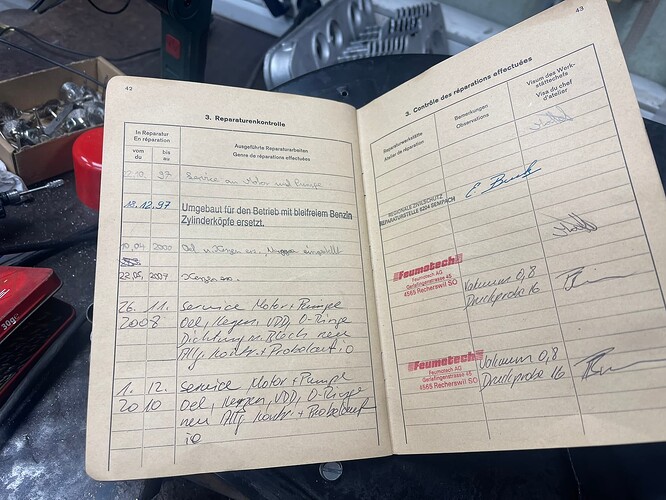 42
3. Reparaturenkontrolle
In Reparatur
En réparation
vom
du
bis
au
Ausgeführte Reparaturarbeiten
Genre de réparations effectuées
2.10. 97 Service an Motor und Pumpe
18.12.97 Umgebaut für den Betrieb mit bleifreiem Benzin
Zylinderköpfe ersetzt.
10.04 2000 Oel u. Kerzen ers.,
22.05. Kerzen ers.
26. 11. Service Motor + Pumpe
2008 Oel, Kerzen, VDD, O-Ringe
Dichtung neu
Allg. Kontr. + Probelauf io
1. 12. Service Motor + Pumpe
2010 Oel, Kerzen, VDD, O-Ringe
neu Allg Kontr. + Probelauf
io
43
3. Contrôle des réparations effectuées
Reparaturwerkstätte
Atelier de réparation
Bemerkungen
Observations
Visum des Werk-
stättechefs
Visa du chef
d'atelier
REGIONALE ZIVILSCHUTZ
REPARATURSTELLE 6204 SEMPACH
Feumotech
Feumotech AG
Gerlafingenstrasse 45
4565 Recherswil SO
Vakuum 0,8
Druckprobe 16
Feumotech
Feumotech AG
Gerlafingenstrasse 45
4565 Recherswil SO
Vakuum 0,8
Druckprobe 16
30g